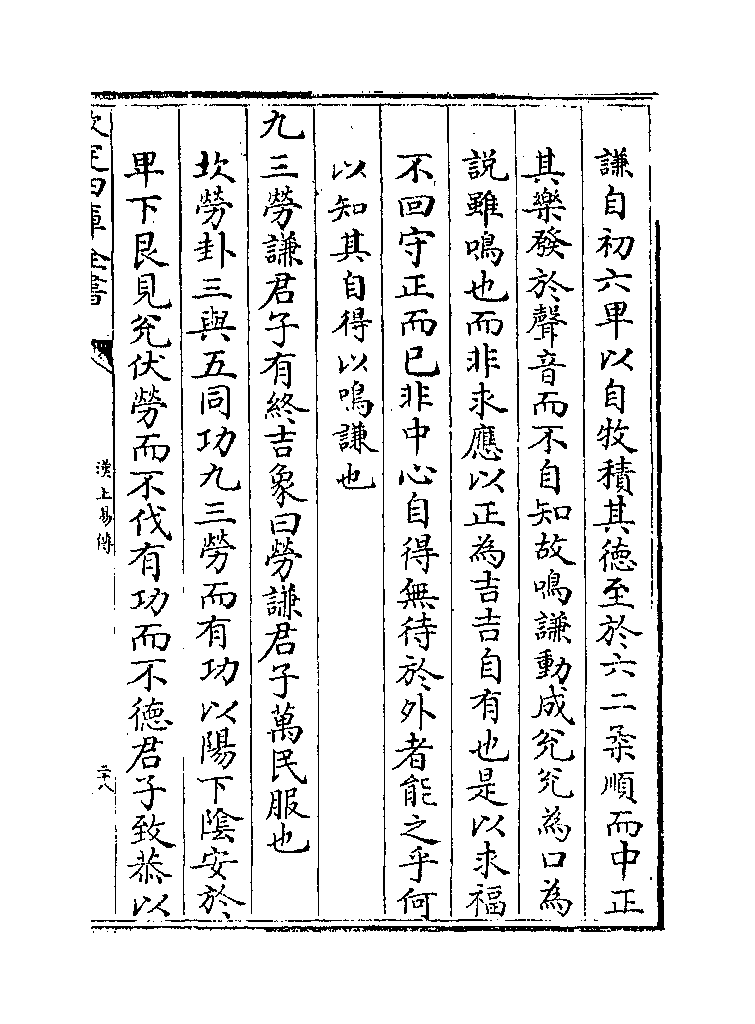 謙自初六卑以自牧積其徳至於六二柔順而中正
其樂發於聲音而不自知故鳴謙動成兊兊為口為
説雖鳴也而非求應以正為吉吉自有也是以求福
不回守正而已非中心自得無待於外者能之乎何
以知其自得以鳴謙也
九三勞謙君子有終吉象曰勞謙君子萬民服也
坎勞卦三與五同功九三勞而有功以陽下隂安於
卑下艮見兊伏勞而不伐有功而不徳君子致恭以
欽定四庫全書
漢上易傳
二十八